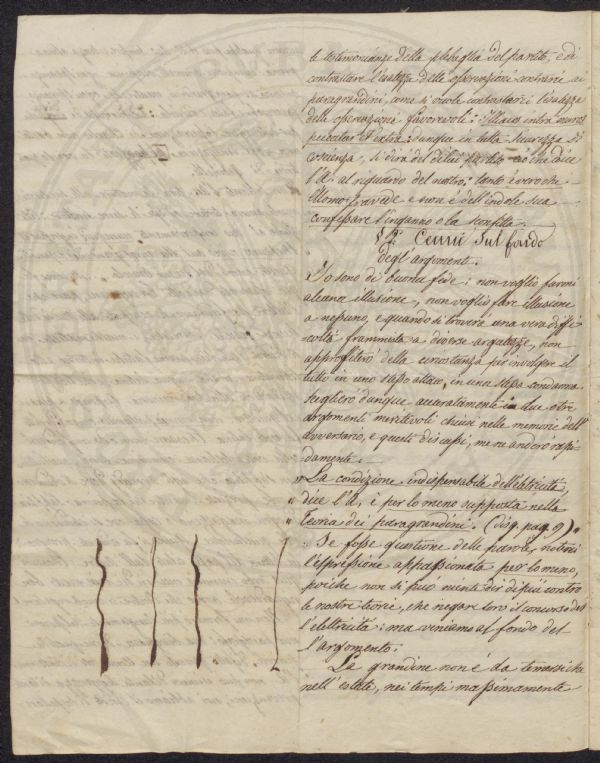 le testimonianze della plebaglia del partito, e di
contrastare l'esatezza delle osservazioni contrarie ai
paragrandini, come si vuole contrastarci l'esatezza
delle osservazioni favorevoli: Illiacos intra muros
peccatur et extra: dunque in tutta sicurezza di
coscienza, si dirà del di lui partito ciò che dice
l'A. al riguardo del nostro: tanto è vero che
l'Uomo travede e non è dell'indole sua
confessare l'inganno o la sconfitta.
Cenni sul fondo
degl'argomenti.
Io sono di buona fede: non voglio farmi
alcuna illusione, non voglio fare illusione
a nessuno, e quando si troverà una vera diffi
coltà frammista a diverse arguzie, non
approfiterò della circostanza per involgere il
tutto in uno stesso attacco, in una stessa condanna
sceglierò dunque accuratamente in due o tre
argomenti meritevoli chiusi nelle memorie dell'
avversario, e questi discussi, me ne anderò rapi-
damente.
"La condizione indispensabile dell'eletricità,
" dice l'A, è per lo meno supposta nella
" Teoria dei paragrandini. (disq. pag. 9) "
Se fosse questione delle parole, noterei
l'espressione appassionata per lo meno,
poiché non si può niente dir di più contro
le nostre teorie, che negar loro il concorso del
l'elettricità: ma veniamo al fondo del
l'argomento:
La grandine non è da temersi che
nell'estate, nei tempi massimamente